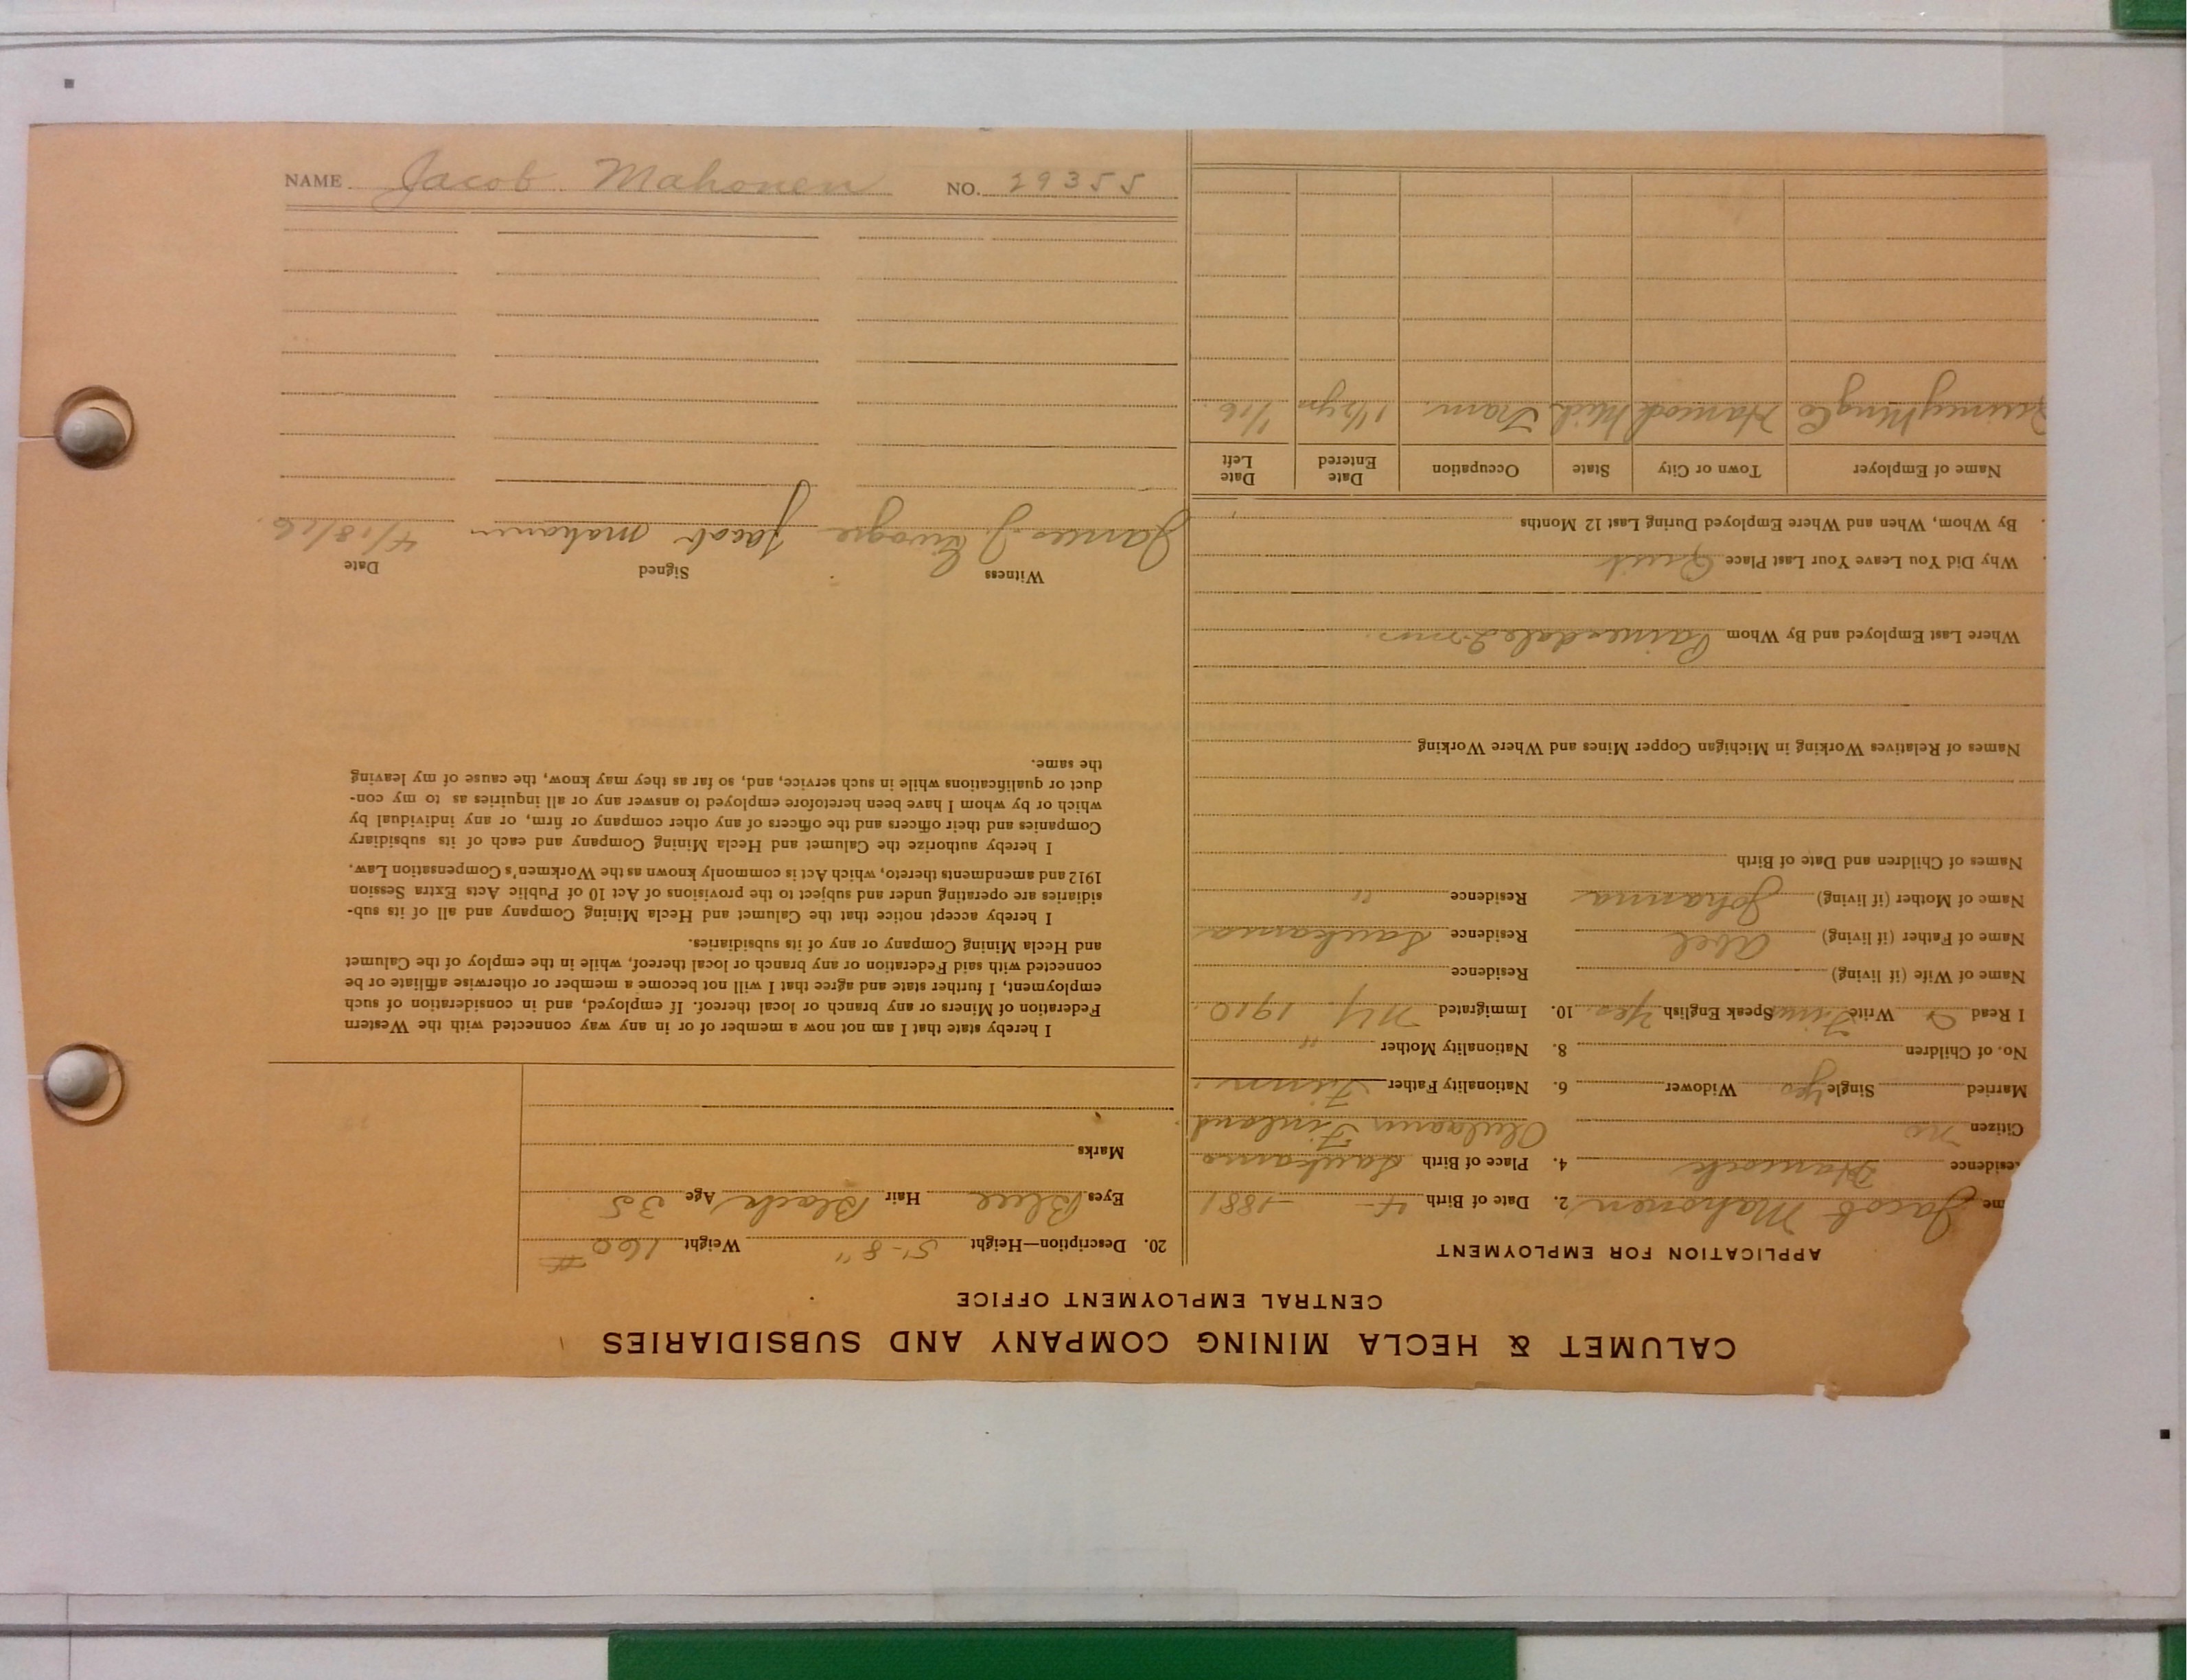 CALUMET & HECLA MINING COMPANY AND SUBSIDIARIES
CENTRAL EMPLOYMENT OFFICE
APPLICATION FOR EMPLOYMENT
me Jacob Mahonen 2. Date of Birth 4 - -1881
esidence Hancock 4. Place of Birth
Citizen no Finland
Married Single yes Widower 6. Nationality Father Finn
No. of Children 8. Nationality Mother "
I Read Write Finn Speak English Yes 10. Immigrated N.Y. 1910
Name of Wife (if living) Residence
Name of Father (if living) Abel Residence
Name of Mother (if living) Johanna Residence "
Names of Children and Date of Birth
Names of Relatives Working in Michigan Copper Mines and Where Working
Where Last Employed and By Whom Painesdale 2 mos.
Why Did You Leave Your Last Place Quit
By Whom, When and Where Employed During Last 12 Months
Name of Employer Town or City State Occupation Date Entered Date Left
Quincy Mng Co Hancock Mich Tram. 1 1/2 yrs 1/16.
20. Description—Height 5'-8" Weight 160 #
Eyes Blue Hair Black Age 35
Marks
I hereby state that I am not now a member of or in any way connected with the Western
Federation of Miners or any branch or local thereof. If employed, and in consideration of such
employment, I further state and agree that I will not become a member or otherwise affiliate or be
connected with said Federation or any branch or local thereof, while in the employ of the Calumet
and Hecla Mining Company or any of its subsidiaries.
I hereby accept notice that the Calumet and Hecla Mining Company and all of its sub-
sidiaries are operating under and subject to the provisions of Act 10 of Public Acts Extra Session
1912 and amendments thereto, which Act is commonly known as the Workmen's Compensation Law.
I hereby authorize the Calumet and Hecla Mining Company and each of its subsidiary
Companies and their officers and the officers of any other company or firm, or any individual by
which or by whom I have been heretofore employed to answer any or all inquiries as to my con-
duct or qualifications while in such service, and, so far as they may know, the cause of my leaving
the same.
Witness Signed Date
James J. Jacob mahonen 4/18/16.
NAME Jacob Mahonen NO. 29355